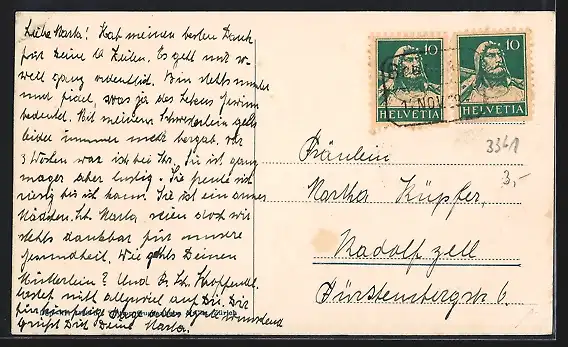 Liebe Marta! Hab meinen besten Dank
für Deine lb Zeilen. Es geht mir so
weit ganz ordentlich. Bin stehts munter
und fidel, was ja des Lebens
bedeutet. Mit meinem Schwesterlein gehts
leider immer mehr bergab. Vor
3 Wochen war ich bei Ihr. Sie ist ganz
mager aber lustig. Sie freute sich
riesig bis ich kam. Sie ist ein armes
Mädchen. Lb. Marta, seien doch wir
stehts dankbar für unsere
Gesundheit. Wie gehts Deinem
Mütterlein? Und Dr. Lb. Hoffentl.
lastet nicht allzuviel auf Dir. Die
wünschend
grüsst Dich Deine Marta.
10
10
NOV
HELVETIA
HELVETIA
3361
3,-
Fräulein
Martha Küpfer,
Radolfzell
Fürstenbergstr. 6.